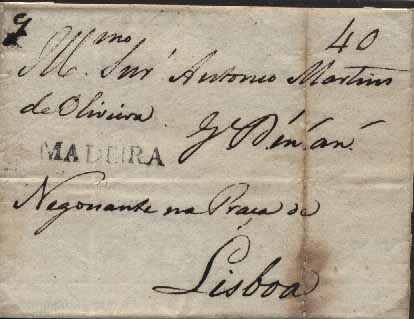 40
Illmo. Snr. Antonio Martins
de Oliveira
MADEIRA
Negociante na Praça de
Lisboa